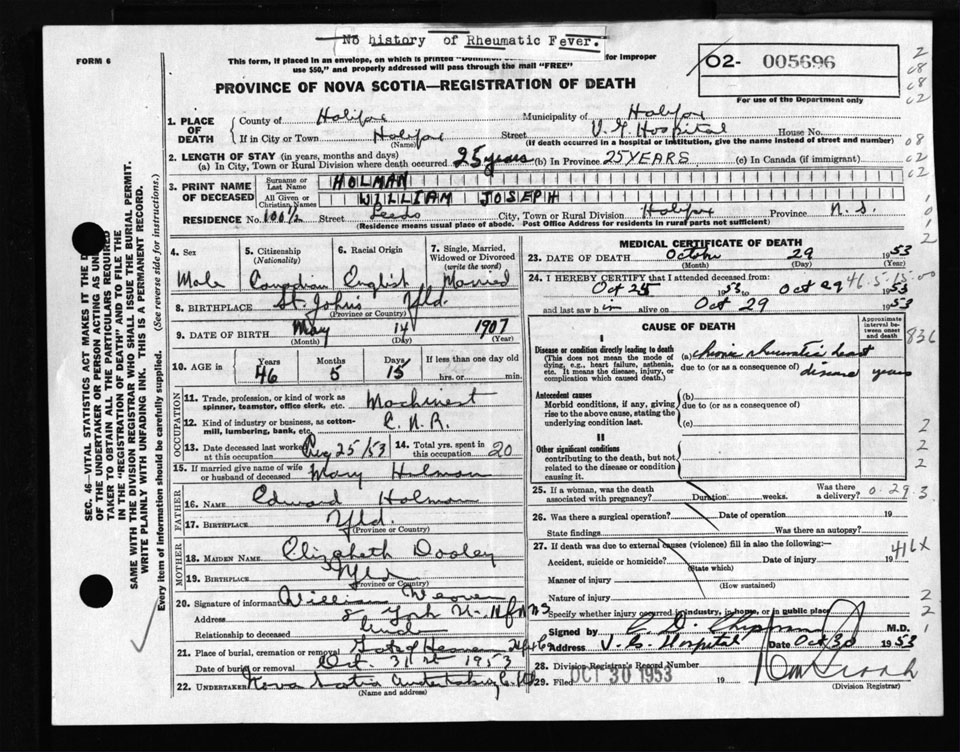 No history of Rheumatic Fever.
FORM 6
This form, if placed in an envelope, on which is printed "Dominion for improper
use $50," and properly addressed will pass through the mail "FREE"
O2- 005696
For use by the Department only
PROVINCE OF NOVA SCOTIA—REGISTRATION OF DEATH
1. PLACE OF DEATH
County of Halifax Municipality of Halifax
If in City or Town Halifax (Name) Street V. G. Hospital House No.
(If death occurred in a hospital or institution, give the name instead of street and number)
2. LENGTH OF STAY (in years, months and days)
(a) In City, Town or Rural Division where death occurred 25 years (b) In Province 25 YEARS (c) In Canada (if immigrant)
3. PRINT NAME OF DECEASED
Surname or Last Name HOLMAN
All Given or Christian Names WILLIAM JOSEPH
RESIDENCE No. 100½ Street Leeds City, Town or Rural Division Halifax Province N.S.
(Residence means usual place of abode. Post Office Address for residents in rural parts not sufficient)
4. Sex
Male
5. Citizenship (Nationality)
Canadian
6. Racial Origin
English
7. Single, Married, Widowed or Divorced (write the word)
Married
8. BIRTHPLACE St. John's Nfld.
(Province or Country)
9. DATE OF BIRTH May 14 1907
(Month) (Day) (Year)
10. AGE in Years 46 Months 5 Days 15 If less than one day old hrs. or min.
OCCUPATION
11. Trade, profession, or kind of work as spinner, teamster, office clerk, etc. Machinest
12. Kind of industry or business, as cotton-mill, lumbering, bank, etc. C.N.R.
13. Date deceased last worked at this occupation Aug 25/53
14. Total yrs. spent in this occupation 20
15. If married give name of wife or husband of deceased Mary Holman
FATHER
16. NAME Edward Holman
17. BIRTHPLACE Nfld.
(Province or Country)
MOTHER
18. MAIDEN NAME Elizabeth Dooley
19. BIRTHPLACE Nfld
(Province or Country)
20. Signature of informant William
Address
Relationship to deceased
21. Place of burial, cremation or removal Gate of Heaven
Date of burial or removal Oct. 31st 1953
22. UNDERTAKER Nova Scotia Undertaking Co.
(Name and address)
MEDICAL CERTIFICATE OF DEATH
23. DATE OF DEATH October 29 1953
(Month) (Day) (Year)
24. I HEREBY CERTIFY that I attended deceased from:
Oct 25 1953 to Oct 29 1953
46-5-15-00
and last saw h im alive on Oct 29 1953
CAUSE OF DEATH
Approximate interval between onset and death
I
Disease or condition directly leading to death
(This does not mean the mode of dying, e.g., heart failure, asthenia, etc. It means the disease, injury, or complication which caused death.)
(a) chronic rheumatic heart
due to (or as a consequence of) disease years
836
Antecedent causes
Morbid conditions, if any, giving rise to the above cause, stating the underlying condition last.
(b)
due to (or as a consequence of)
(c)
II
Other significant conditions
contributing to the death, but not related to the disease or condition causing it.
25. If a woman, was the death associated with pregnancy? Duration weeks. Was there a delivery? 0.29.3
26. Was there a surgical operation? Date of operation 19
State findings Was there an autopsy?
27. If death was due to external causes (violence) fill in also the following:—
Accident, suicide or homicide? Date of injury 19
(State which)
416X
Manner of injury
(How sustained)
Nature of injury
Specify whether injury occurred in industry, in home, or in public place
Signed by M.D.
Address V. G. Hospital Date Oct 30 1953
28. Division Registrar's Record Number
29. Filed OCT 30 1953 19
(Division Registrar)
SEC. 46—VITAL STATISTICS ACT MAKES IT THE D
OF THE UNDERTAKER OR PERSON ACTING AS UN
TAKER TO OBTAIN ALL THE PARTICULARS REQUIRED
IN THE "REGISTRATION OF DEATH" AND TO FILE THE
SAME WITH THE DIVISION REGISTRAR WHO SHALL ISSUE THE BURIAL PERMIT.
WRITE PLAINLY WITH UNFADING INK. THIS IS A PERMANENT RECORD.
Every item of information should be carefully supplied. (See reverse side for instructions.)